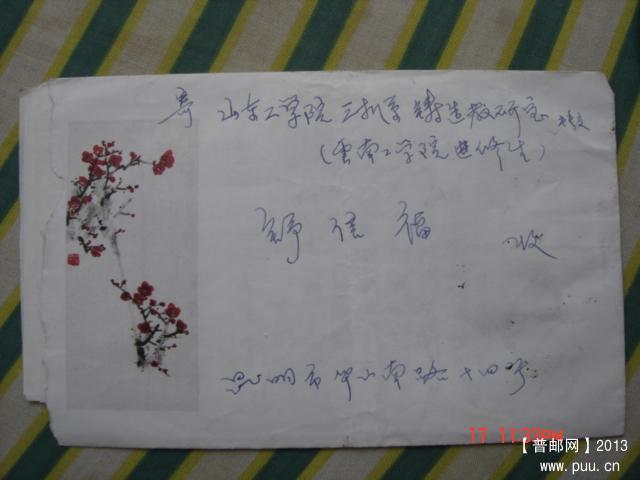 寄 山东工学院 二机系 铸造教研室 转交
(云南工学院进修生)
舒信福 收
昆明市华山南路十四号
17 11:33PM
【普邮网】2013
www.puu.cn